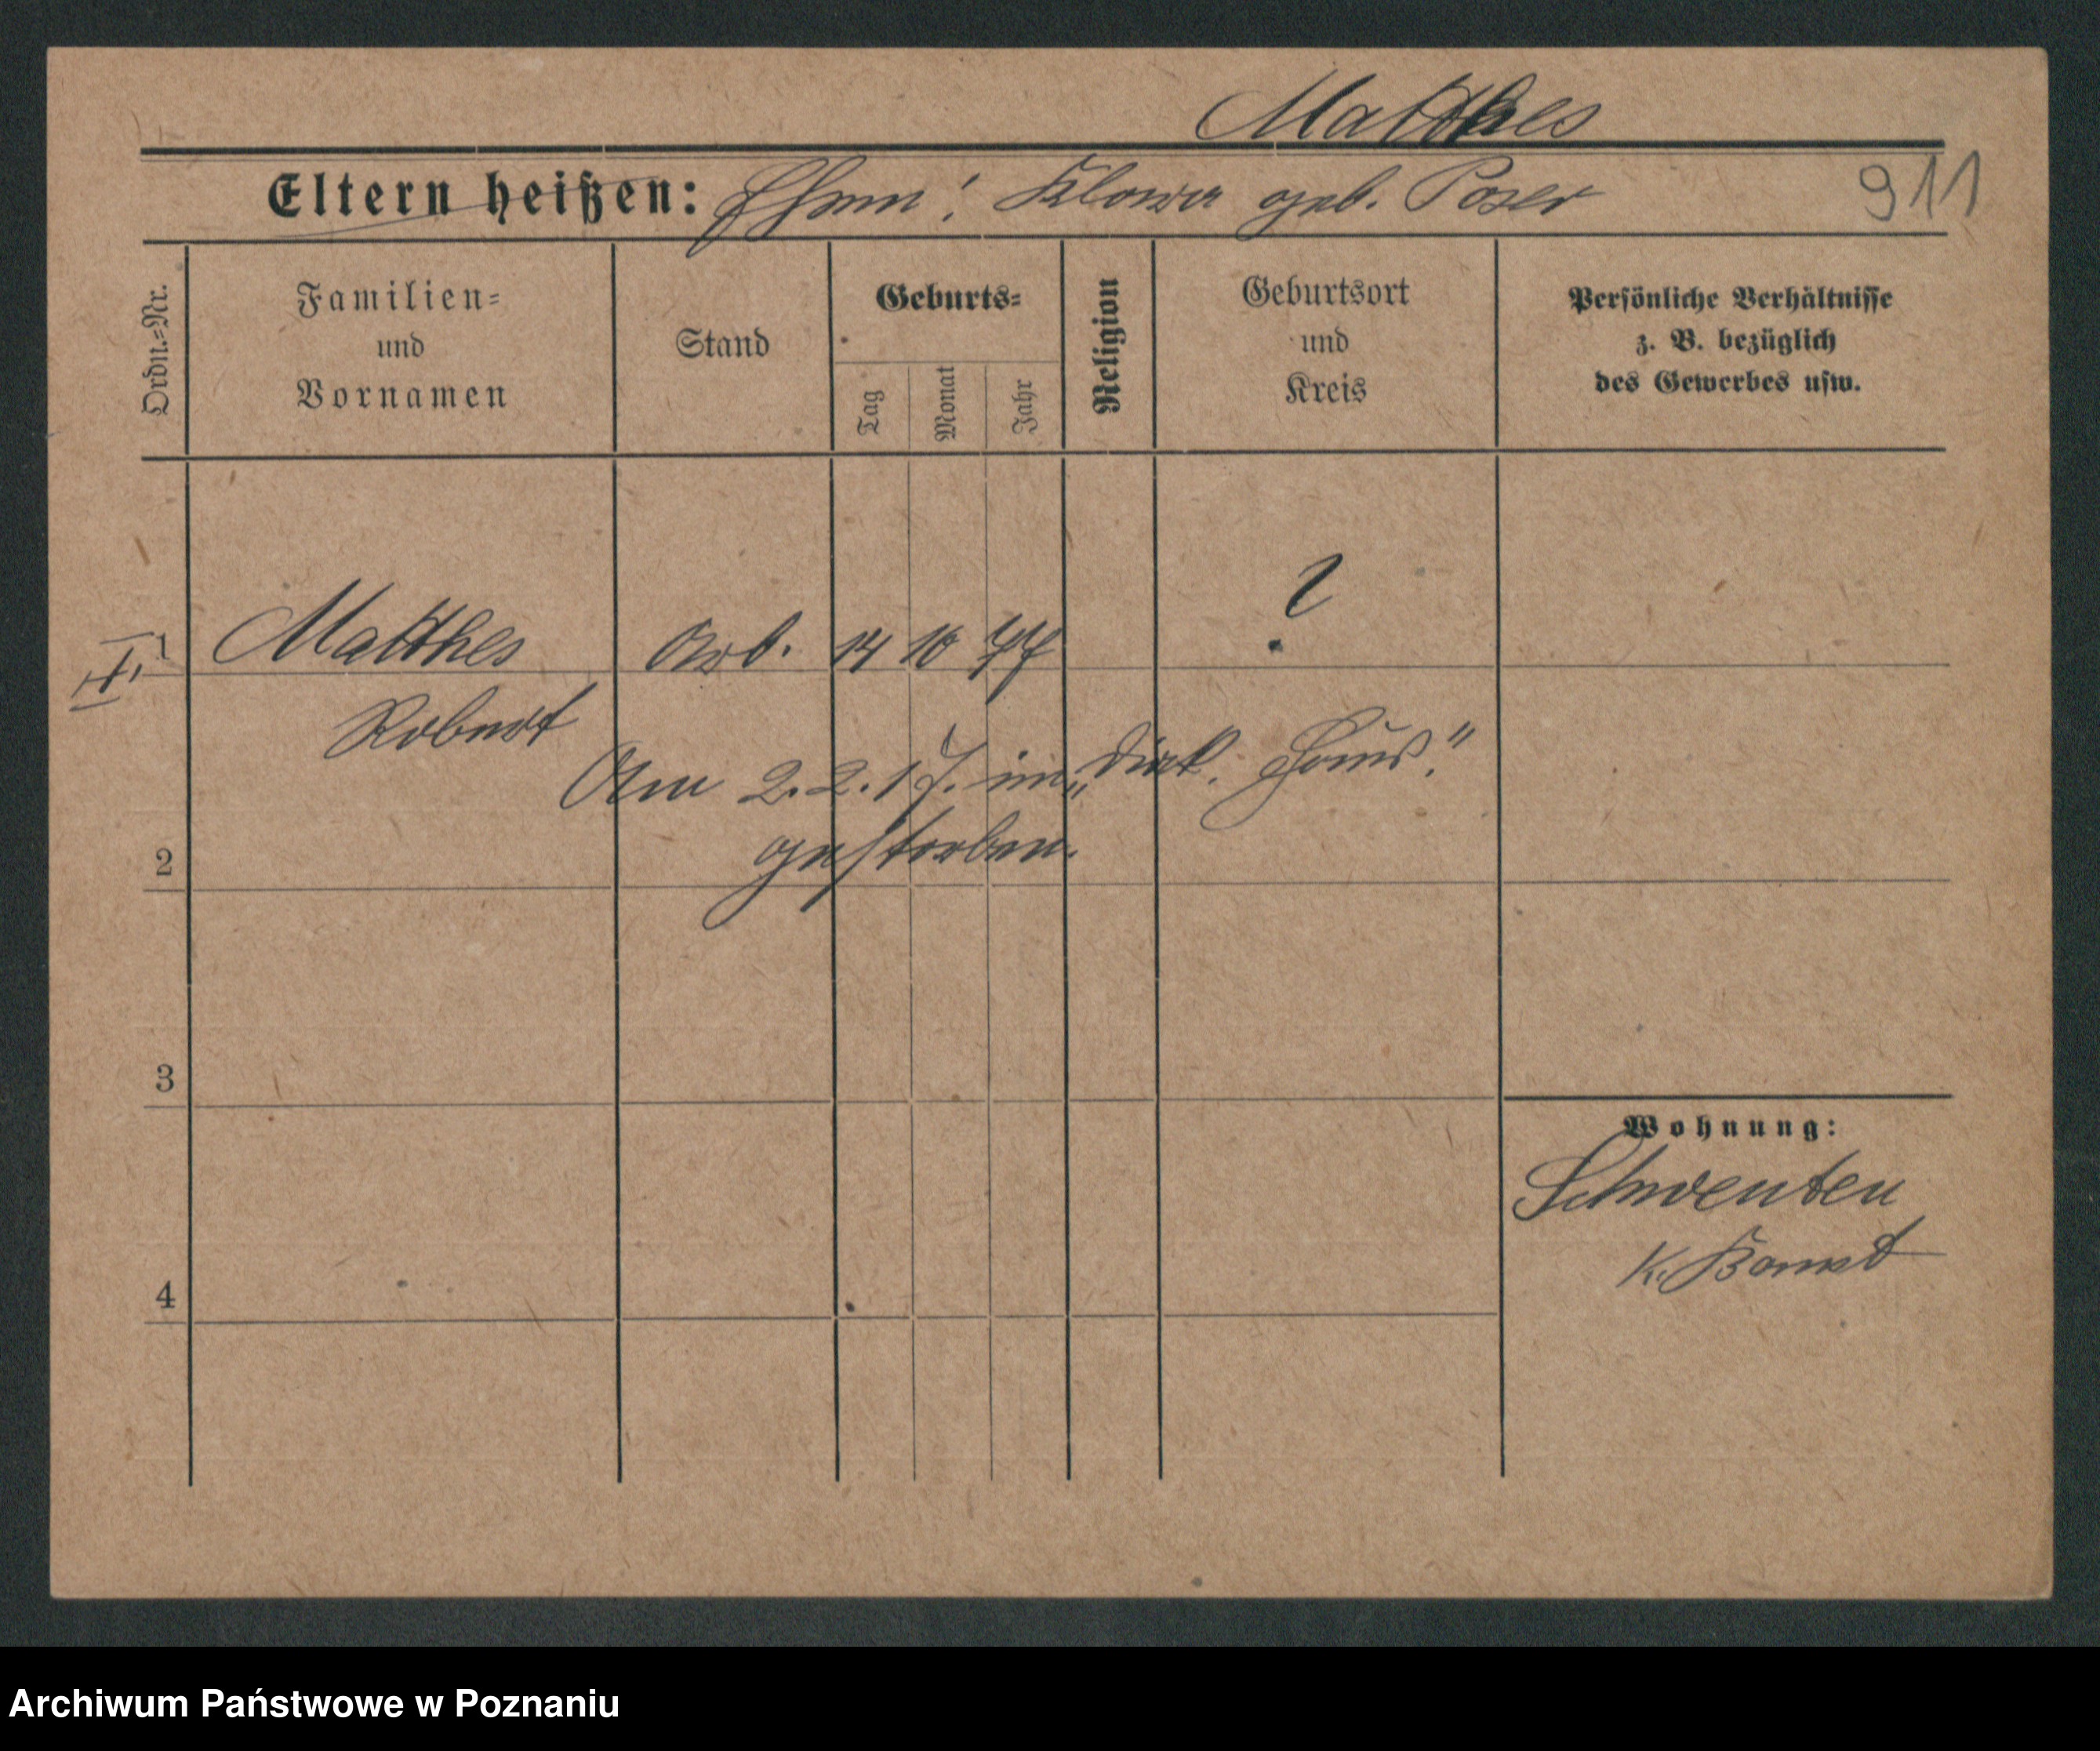 Matthes
Eltern heißen: Ehem: Klowa geb. Poser 911
Ordn.-Nr.
Familien-
und
Vornamen
Stand
Geburts-
Tag
Monat
Jahr
Religion
Geburtsort
und
Kreis
Persönliche Verhältnisse
z. B. bezüglich
des Gewerbes usw.
I. 1 Matthes Arb. 14 10 77 ?
Robert
Am 2.2.17. im „Diak. Haus."
gestorben.
2
3
4
Wohnung:
Schwenten
K. Bomst
Archiwum Państwowe w Poznaniu